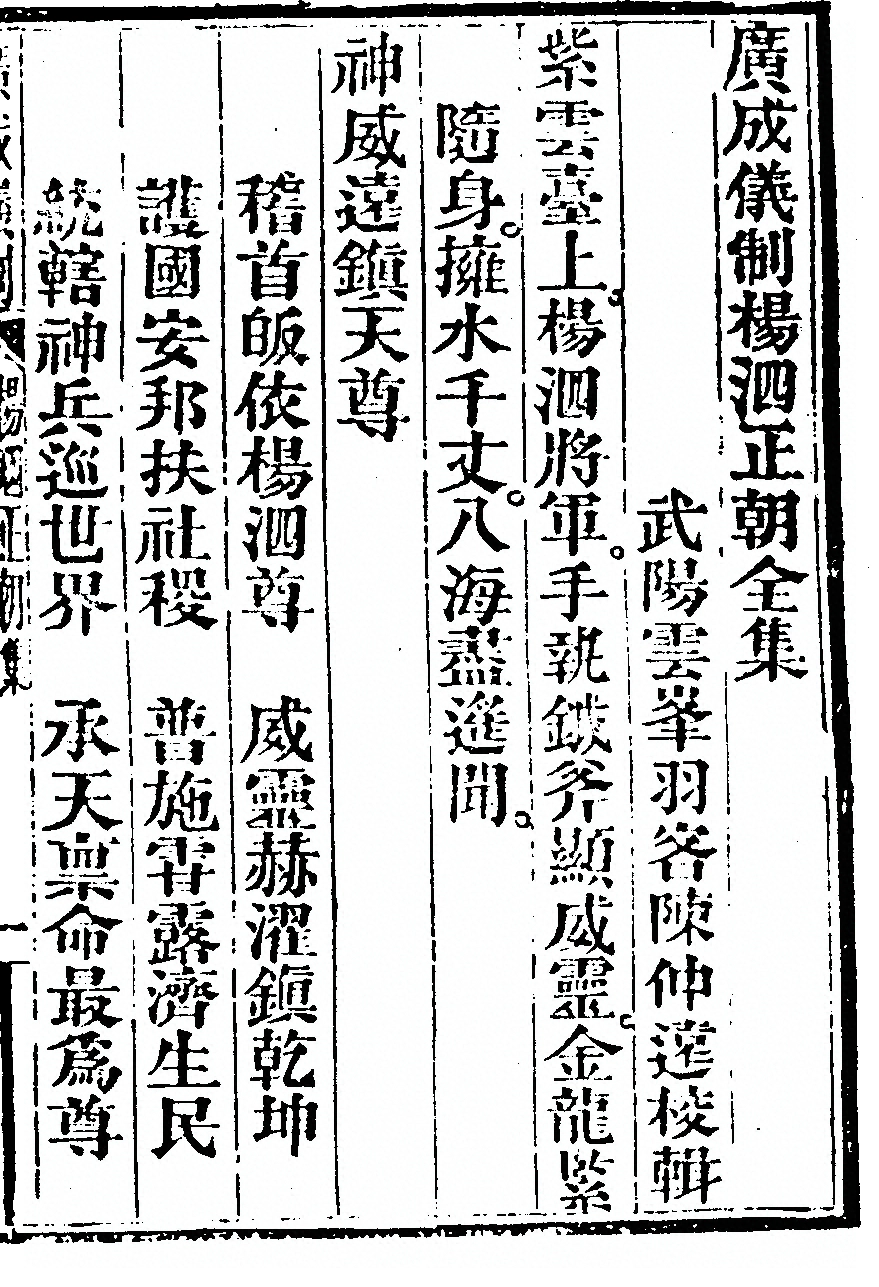 廣成儀制楊泗正朝全集
武陽雲峯羽客陳仲遠校輯
紫雲臺上。楊泗將軍。手執鉞斧顯威靈。金龍緊
隨身。擁水千丈。八海盡進聞。
神威遠鎮天尊
稽首皈依楊泗尊　威靈赫濯鎮乾坤
護國安邦扶社稷　普施霄露濟生民
統轄神兵巡世界　承天禀命最爲尊
廣成儀制　楊泗正朝集　一